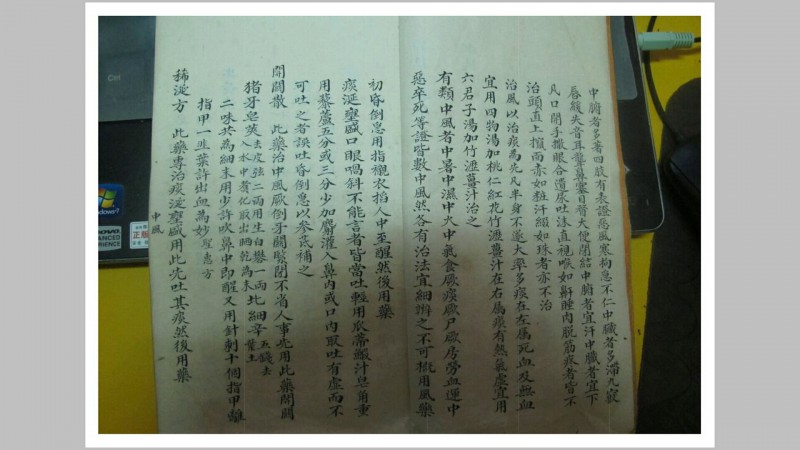 中腑者多著四肢有表證惡風寒拘急不仁中臟者多滯九竅
唇緩失音耳聾鼻塞目瞀大便閉結中腑者宜汗中臟者宜下
凡口開手撒眼合遺尿吐沫直視喉如鼾睡肉脫筋疼者皆不
治頭直上攛面赤如粧汗綴如珠者亦不治
治風以治痰為先凡半身不遂大率多痰在左屬死血及無血
宜用四物湯加桃仁紅花竹瀝薑汁在右屬痰有熱氣虛宜用
六君子湯加竹瀝薑汁治之
有類中風者中暑中濕中火中氣食厥痰厥尸厥房勞血運中
惡卒死等證皆數中風然各有治法宜細辨之不可槩用風藥
初昏倒急用指襯衣掐人中至醒然後用藥
痰涎壅盛口眼喎斜不能言者皆當吐輕用瓜蒂鹹汁皂角重
用藜蘆五分或三分少加麝灌入鼻內或口內取吐有虛而不
可吐之者誤吐昏倒急以參芪補之
開關散 此藥治中風厥倒牙關緊閉不省人事先用此藥開關
猪牙皂莢去皮弦二兩用生白礬一兩北細辛五錢去
入水中煮化取出晒乾為末 葉土
二味共為細末用少許吹鼻中即醒又用針刺十個指甲離
指甲一韭葉許出血為妙聖惠方
稀涎方 此藥專治痰涎壅盛用此先吐其痰然後用藥
中風
Windows 7
lenovo
ADVANCED
EXPERIENCE
正版